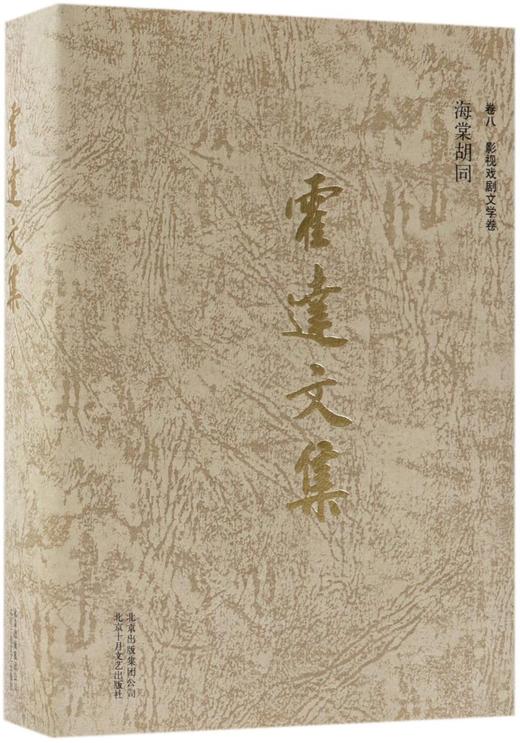 卷八 影视戏剧文学卷
海棠胡同
霍达文集
北京出版集团公司
北京十月文艺出版社
霍达文集